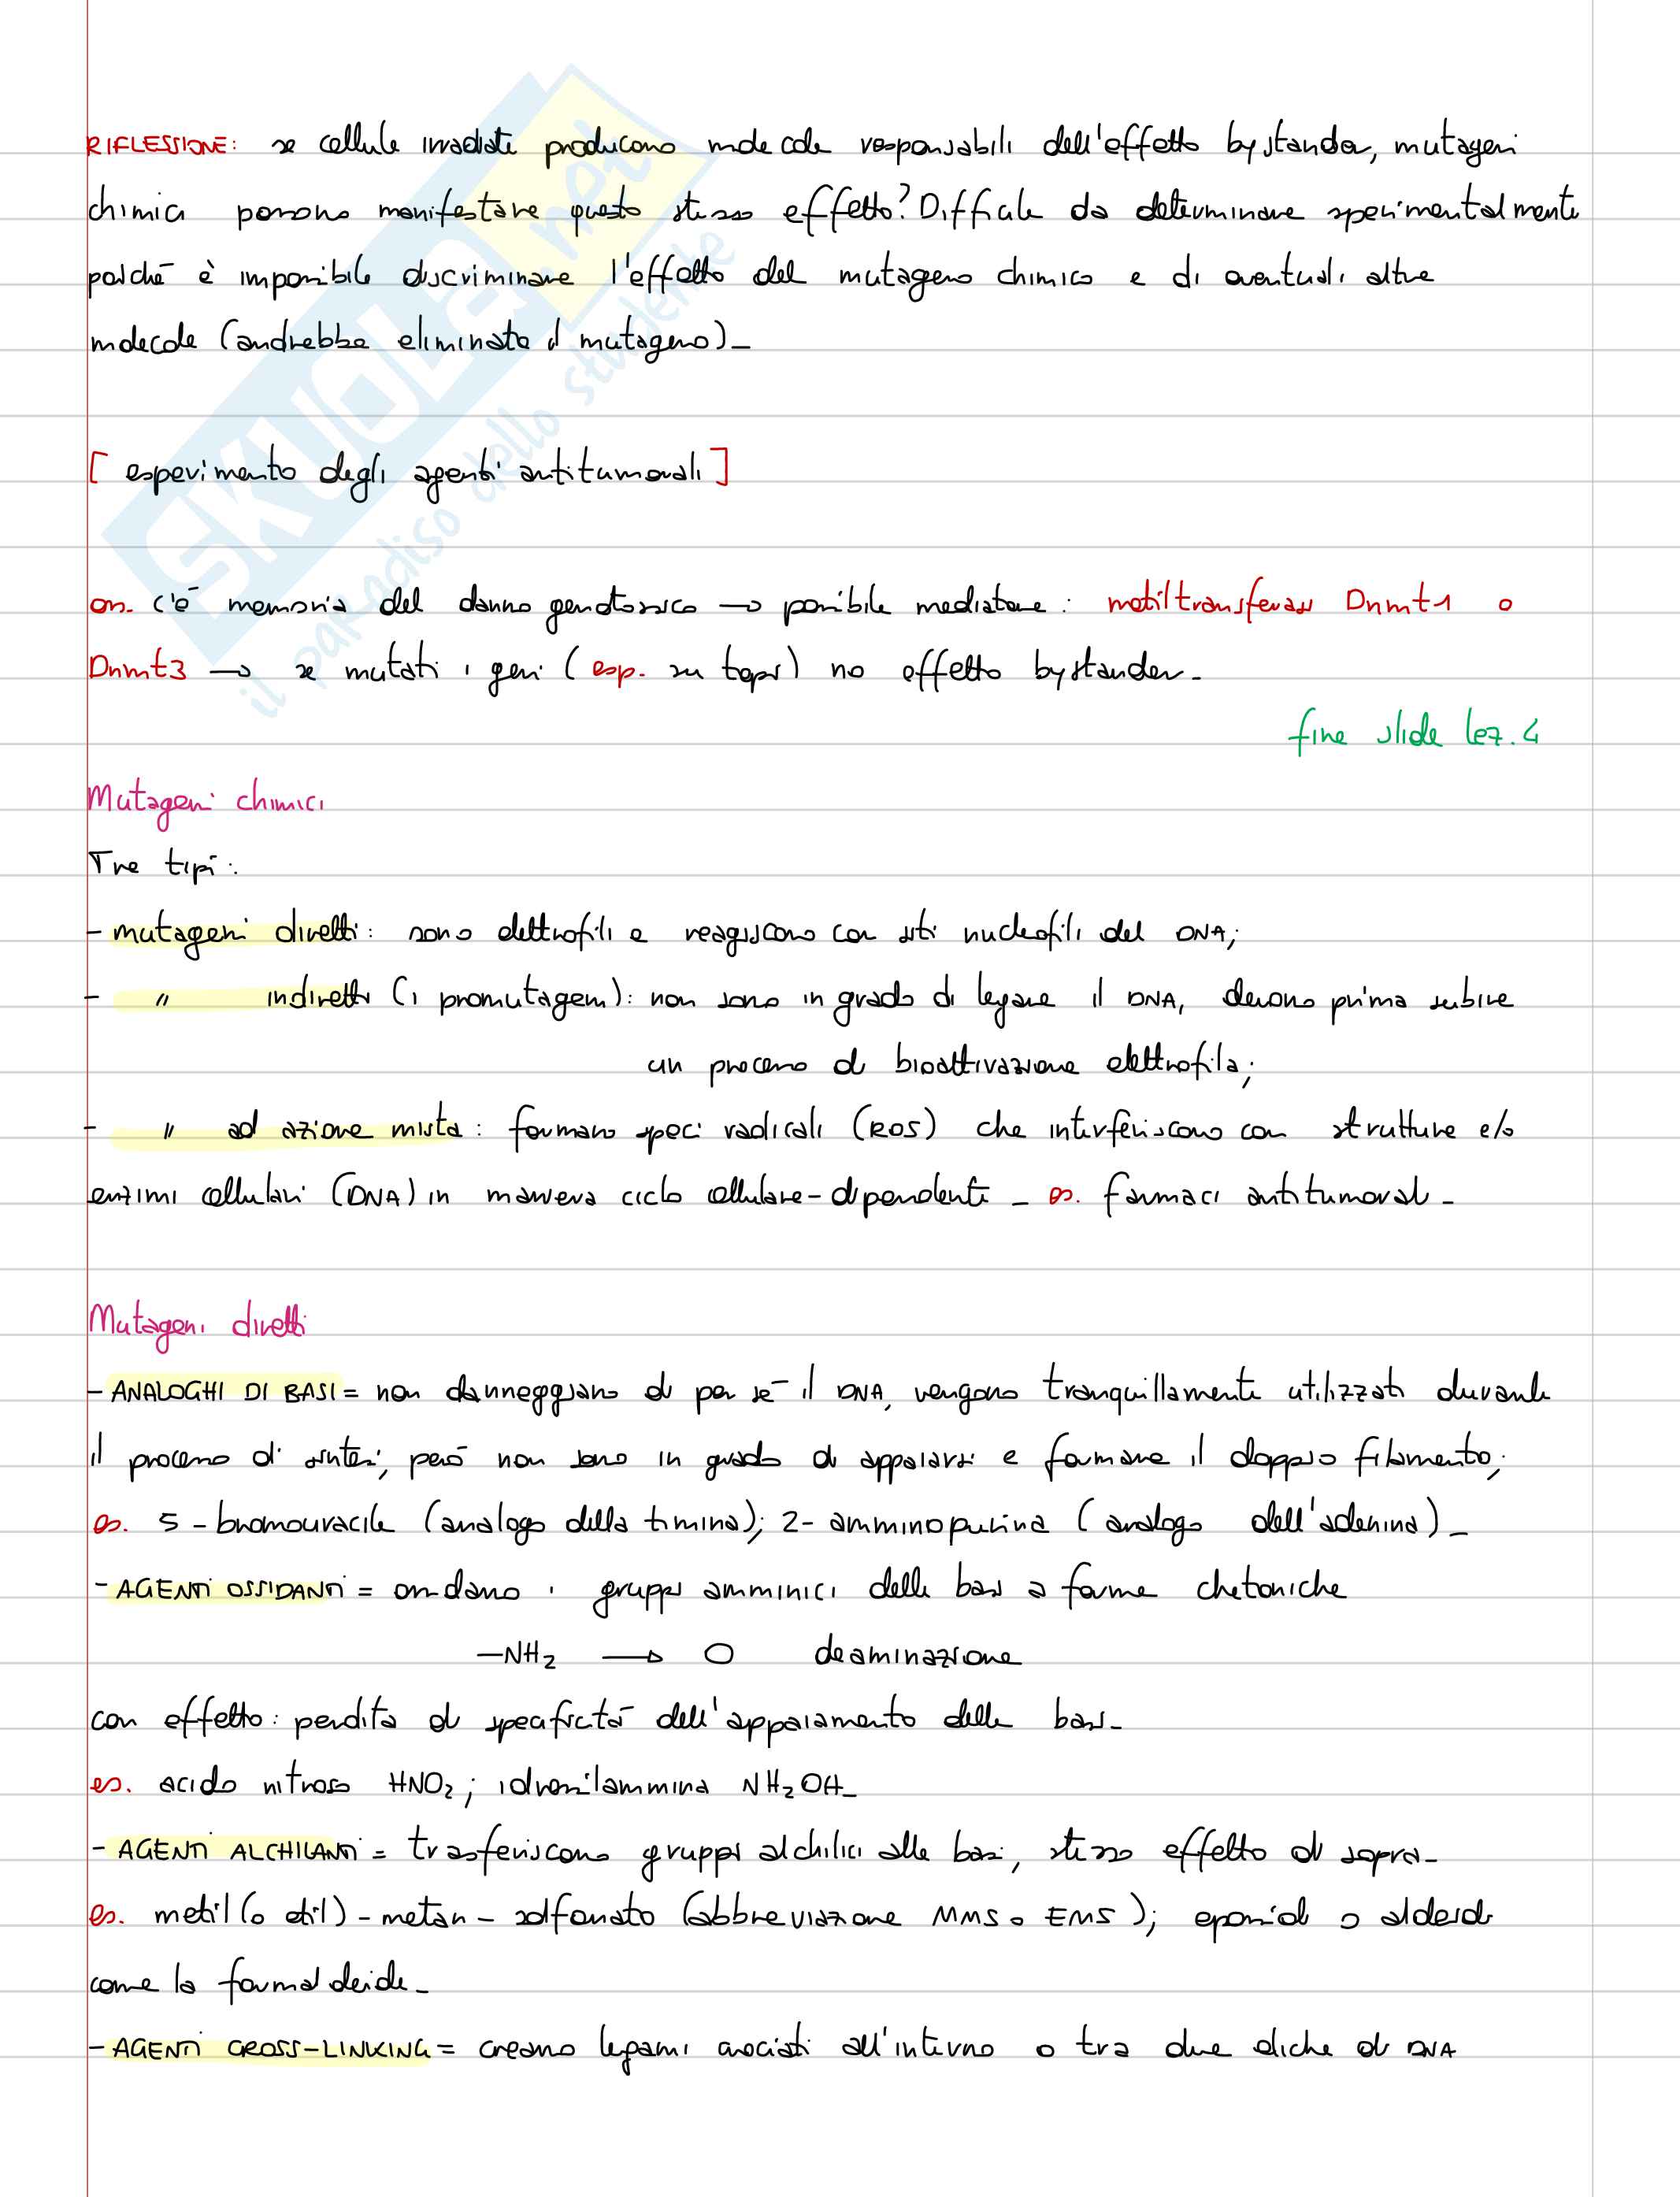 RIFLESSIONE: se cellule irradiate producono molecole responsabili dell'effetto bystander, mutageni
chimici possono manifestare questo stesso effetto? Difficile da determinare sperimentalmente
poiché è impossibile discriminare l'effetto del mutageno chimico e di eventuali altre
molecole (andrebbe eliminato il mutageno)_
[esperimento degli agenti antitumorali]
oss. c'è memoria del danno genotossico → possibile mediatore: metiltransferasi Dnmt1 o
Dnmt3 → se mutati i geni (esp. su topi) no effetto bystander_
fine slide lez. 4
Mutageni chimici
Tre tipi:
- mutageni diretti: sono elettrofili e reagiscono con siti nucleofili del DNA;
- " indiretti (i promutageni): non sono in grado di legare il DNA, devono prima subire
un processo di bioattivazione elettrofila;
- " ad azione mista: formano speci radicali (ROS) che interferiscono con strutture e/o
enzimi cellulari (DNA) in maniera ciclo cellulare-dipendente_ es. farmaci antitumorali_
Mutageni diretti
- ANALOGHI DI BASI = non danneggiano di per sé il DNA, vengono tranquillamente utilizzati durante
il processo di sintesi, però non sono in grado di appaiarsi e formare il doppio filamento;
es. 5-bromouracile (analogo della timina); 2-amminopurina (analogo dell'adenina)_
- AGENTI OSSIDANTI = ossidano i gruppi amminici delle basi a forme chetoniche
-NH2 → O deaminazione
con effetto: perdita di specificità dell'appaiamento delle basi_
es. acido nitroso HNO2; idrossilammina NH2OH_
- AGENTI ALCHILANTI = trasferiscono gruppi alchilici alle basi, stesso effetto di sopra_
es. metil (o etil)-metan-solfonato (abbreviazione MMS o EMS); epossidi o aldeidi
come la formaldeide_
- AGENTI CROSS-LINKING = creano legami crociati all'interno o tra due eliche di DNA
SKUOLA.net
il paradiso dello studente